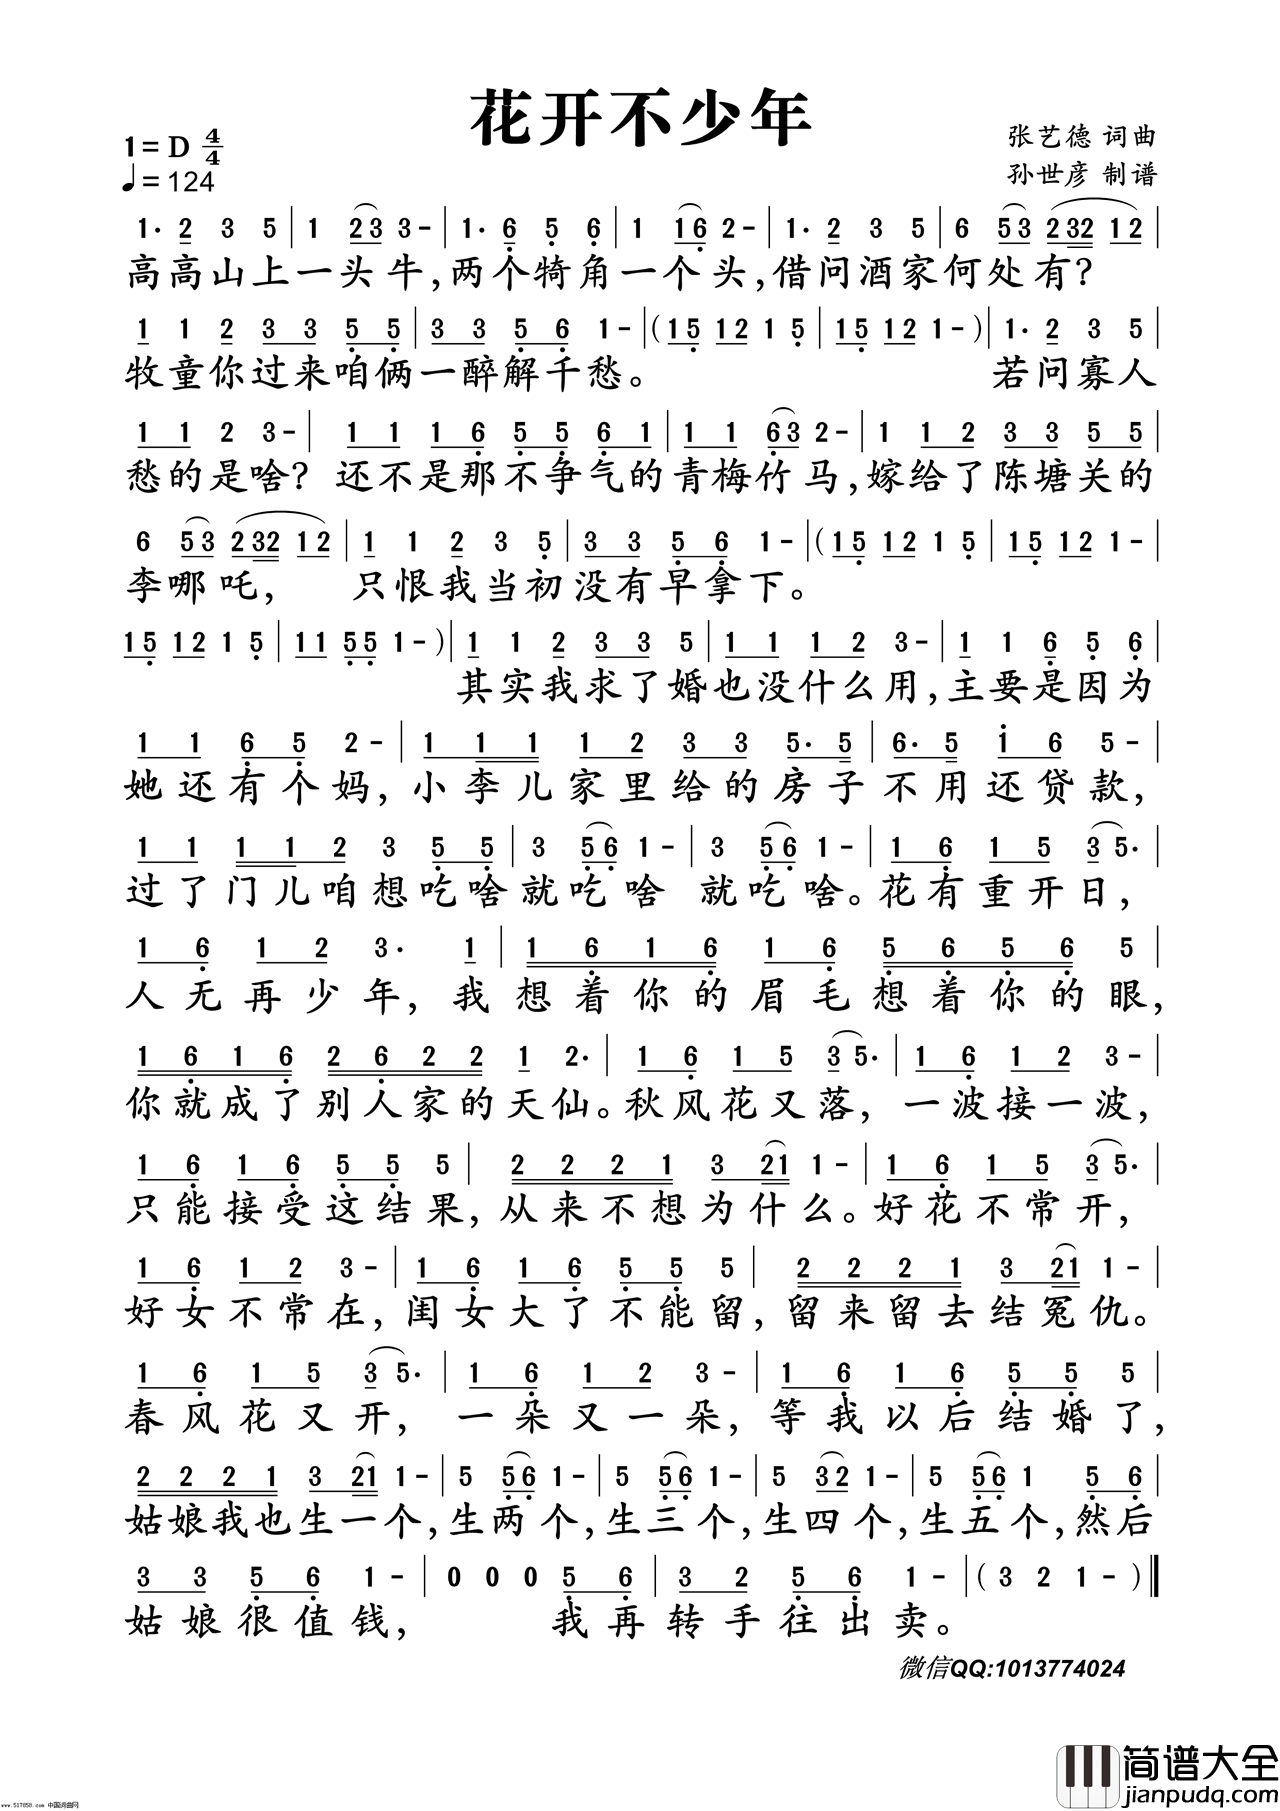 花开不少年
1=D 4/4
♩=124
张艺德 词曲
孙世彦 制谱
1· 2 3 5 | 1 2 3 3 - | 1· 6 5 6 | 1 1 6 2 - | 1· 2 3 5 | 6 5 3 2 3 2 1 2 |
高高山上一头牛,两个犄角一个头,借问酒家何处有?
1 1 2 3 3 5 5 | 3 3 5 6 1 - | ( 1 5 1 2 1 5 | 1 5 1 2 1 - ) | 1· 2 3 5 |
牧童你过来咱俩一醉解千愁。 若问寡人
1 1 2 3 - | 1 1 1 6 5 5 6 1 | 1 1 6 3 2 - | 1 1 2 3 3 5 5 |
愁的是啥?还不是那不争气的青梅竹马,嫁给了陈塘关的
6 5 3 2 3 2 1 2 | 1 1 2 3 5 | 3 3 5 6 1 - | ( 1 5 1 2 1 5 | 1 5 1 2 1 - |
李哪吒, 只恨我当初没有早拿下。
1 5 1 2 1 5 | 1 1 5 5 1 - ) | 1 1 2 3 3 5 | 1 1 1 2 3 - | 1 1 6 5 6 |
其实我求了婚也没什么用,主要是因为
1 1 6 5 2 - | 1 1 1 1 2 3 3 5· 5 | 6· 5 i 6 5 - |
她还有个妈,小李儿家里给的房子不用还贷款,
1 1 1 1 2 3 5 5 | 3 5 6 1 - | 3 5 6 1 - | 1 6 1 5 3 5· |
过了门儿咱想吃啥就吃啥 就吃啥。花有重开日,
1 6 1 2 3· 1 | 1 6 1 6 1 6 5 6 5 6 5 |
人无再少年,我想着你的眉毛想着你的眼,
1 6 1 6 2 6 2 2 1 2· | 1 6 1 5 3 5· | 1 6 1 2 3 - |
你就成了别人家的天仙。秋风花又落,一波接一波,
1 6 1 6 5 5 5 | 2 2 2 1 3 2 1 1 - | 1 6 1 5 3 5· |
只能接受这结果,从来不想为什么。好花不常开,
1 6 1 2 3 - | 1 6 1 6 5 5 5 | 2 2 2 1 3 2 1 1 - |
好女不常在,闺女大了不能留,留来留去结冤仇。
1 6 1 5 3 5· | 1 6 1 2 3 - | 1 6 1 6 5 5 5 |
春风花又开,一朵又一朵,等我以后结婚了,
2 2 2 1 3 2 1 1 - | 5 5 6 1 - | 5 5 6 1 - | 5 3 2 1 - | 5 5 6 1 5 6 |
姑娘我也生一个,生两个,生三个,生四个,生五个,然后
3 3 5 6 1 - | 0 0 0 5 6 | 3 2 5 6 1 - | ( 3 2 1 - ) ‖
姑娘很值钱, 我再转手往出卖。
微信QQ:1013774024
简谱大全
jianpudq.com
www.517858.com 中国词曲网